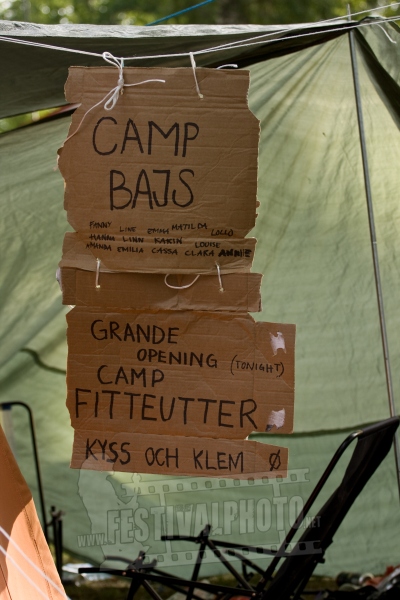 CAMP
BAJS
FANNY LINE EMMA MATILDA LOLLO
HANNA LINN KARIN LOUISE
AMANDA EMILIA CASSA CLARA ANDIE
GRANDE
OPENING (TONIGHT)
CAMP
FITTEUTTER
KYSS OCH KLEM Ø
www.FESTIVALPHOTO.net